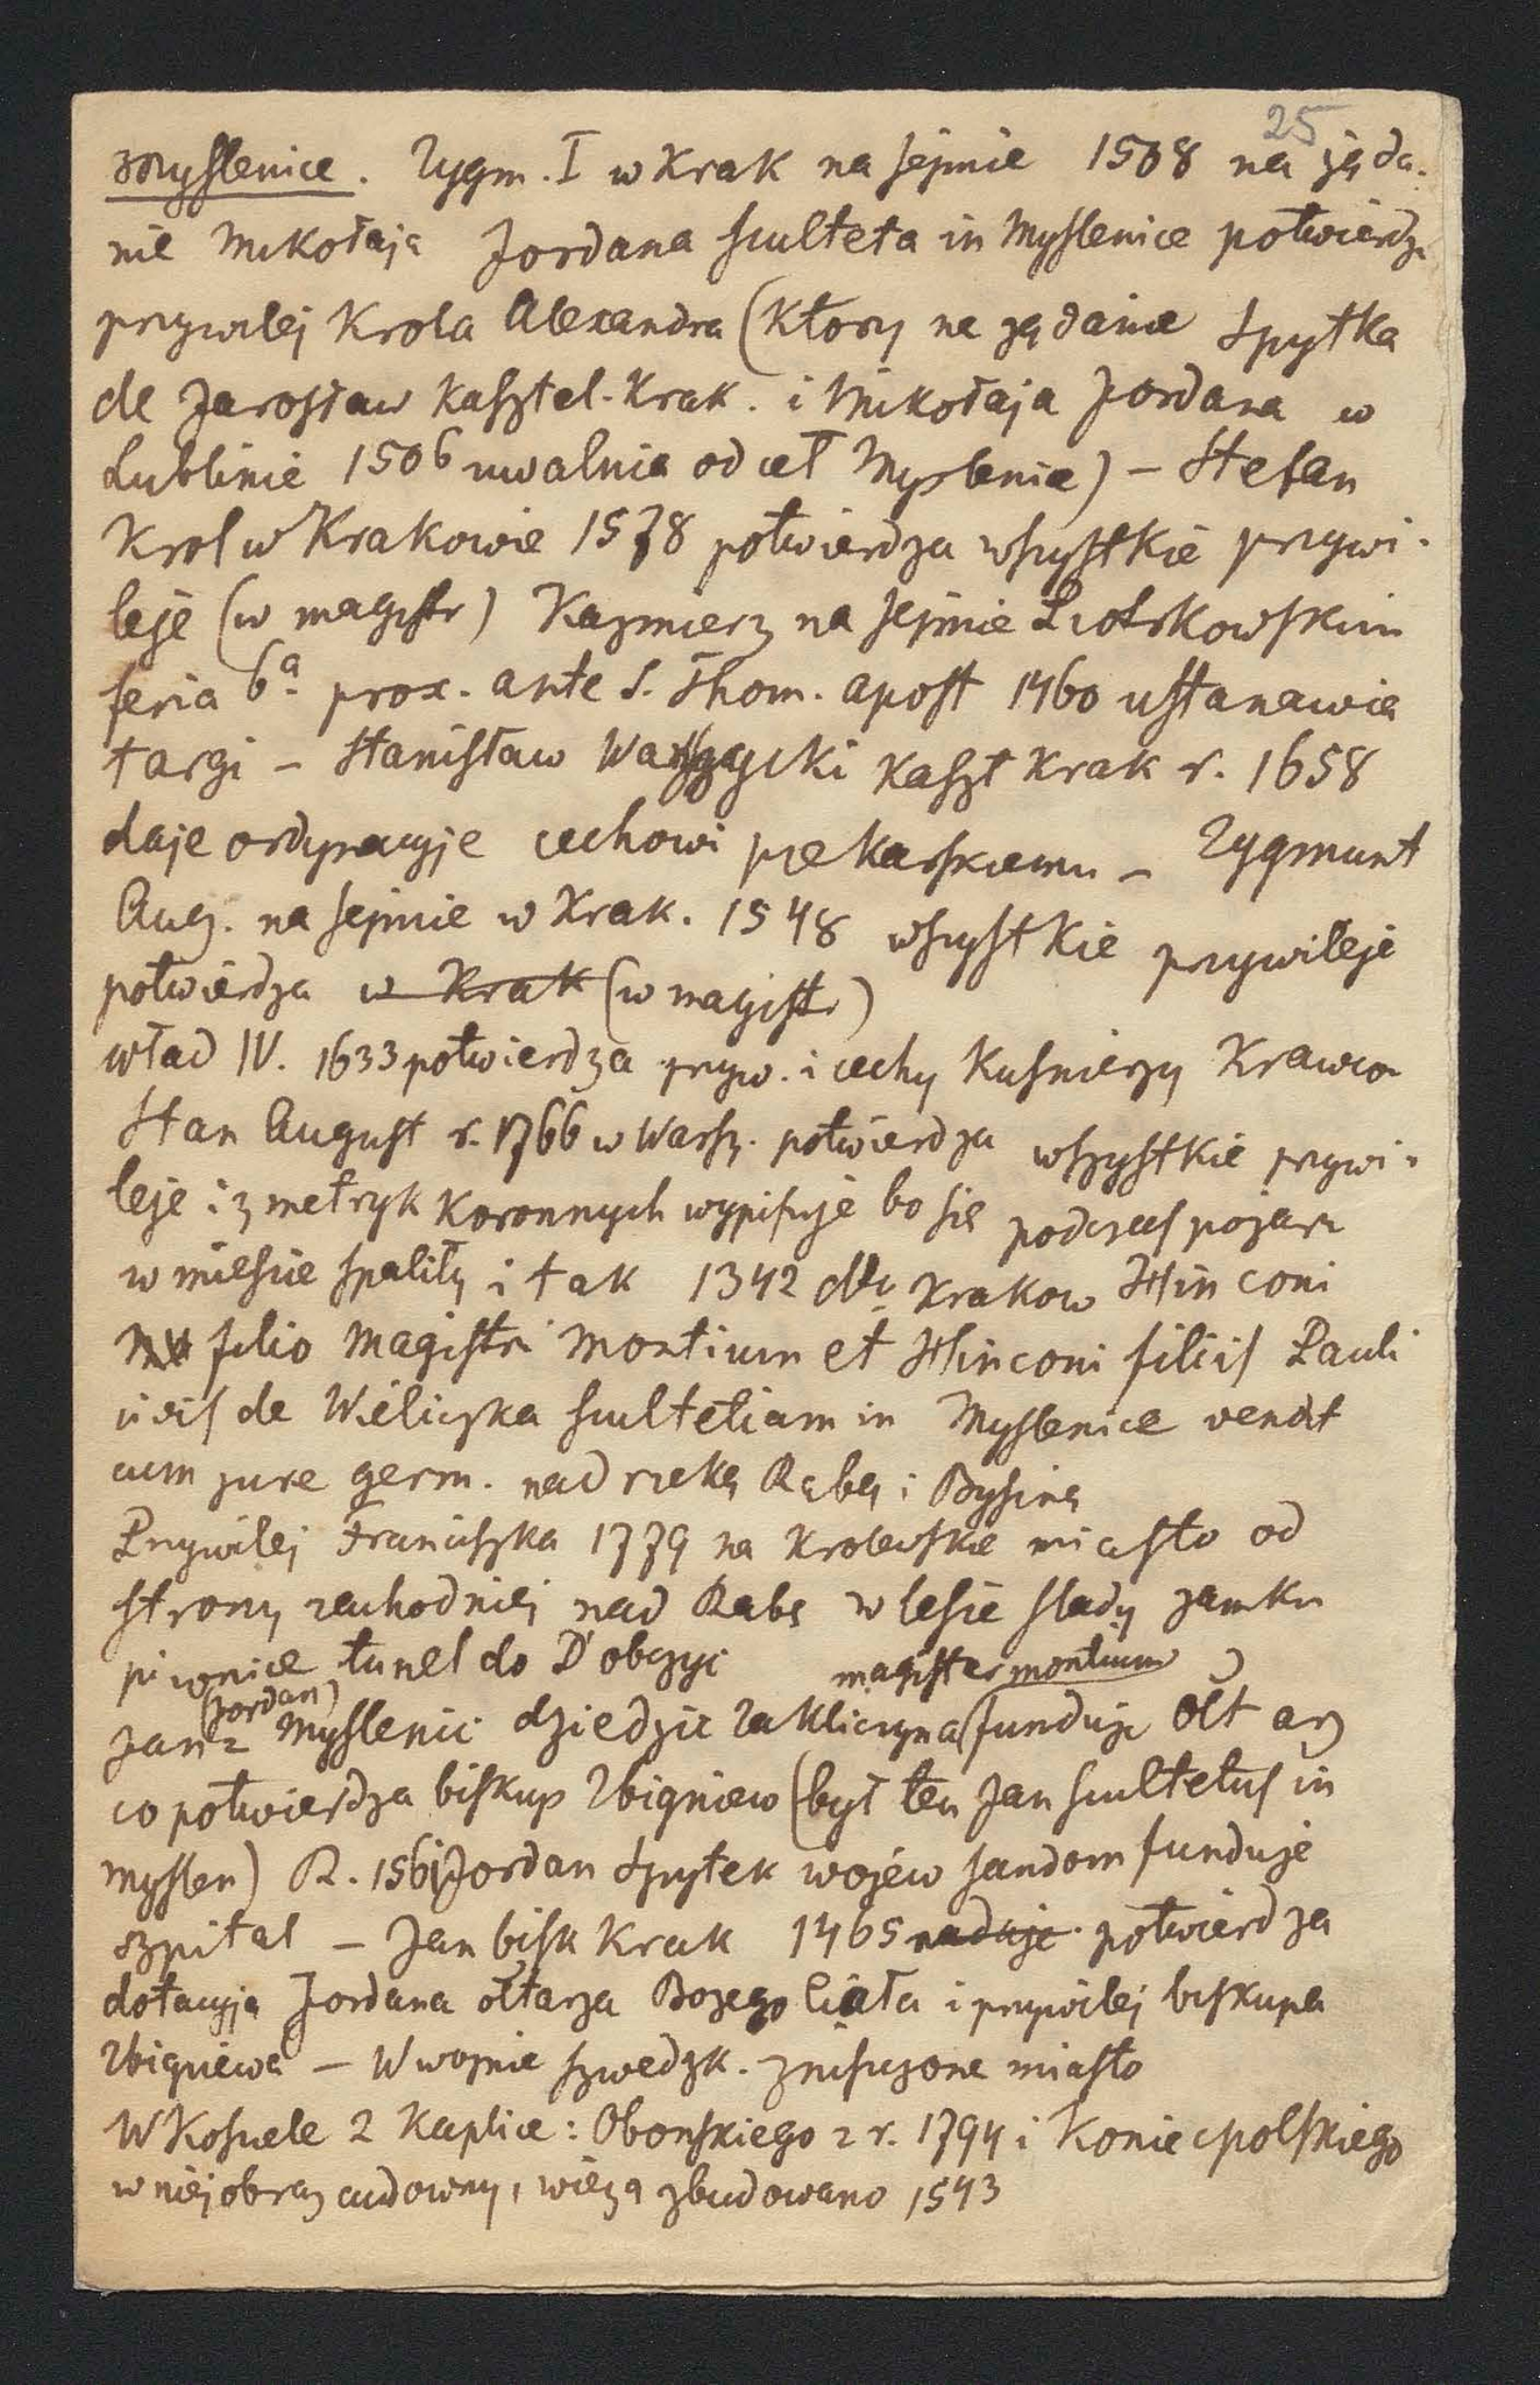 25
Myslenice. Zygm. I w Krak na sejmie 1508 na żąda-
nie Mikołaja Jordana sculteta in Myslenice potwierdz
przywilej Krola Alexandra (Ktory na żądanie Spytka
de Jarosław Kasztel. Krak. i Mikołaja Jordana w
Lublinie 1506 uwalnia od ceł Myslenice) – Stefan
Krol w Krakowie 1578 potwierdza wszystkie przywi-
leje (w magistr) Kazmierz na sejmie Piotrkowskim
feria 6ª prox. ante S. Thom. apost 1460 ustanawia
targi – Stanisław Warszycki Kaszt Krak r. 1658
daje ordynacyje cechowi piekarskiemu – Zygmunt
Aug. na sejmie w Krak. 1548 wszystkie przywileje
potwierdza w Krak (w magistr)
Wład IV. 1633 potwierdza przyw. i cechy Kusnierzy Krawco
Stan August r. 1766 w Warsz. potwierdza wszystkie przywi-
leje i z metryk Koronnych wypisuje bo się podczas pożaru
w miescie spality i tak 1342 Krakow Hinconi
filio Magistri Montium et Hinconi filiis Pauli
civis de Wieliczka scultetiam in Myslenice vendit
cum jure germ. nad rzeką Rabą i Bysiną
Przywilej Franciszka 1779 na Krolewskie miasto od
strony zachodniej nad Rabą w lesie slady zamku
piwnice tunel do Dobczyc magister montium)
Jan z (Jordan) Myslenic dziedzic Zakliczyna (funduje Ołt arz
co potwierdza biskup Zbigniew (był ten Jan scultetus in
Myslen) R. 1561 Jordan Spytek wojew sandom funduje
szpital – Jan bisk Krak 1465 naduje potwierdza
dotacyją Jordana ołtarza Bożego Ciała i przywilej biskupa
Zbigniewa – W wojnie szwedzk. zniszczone miasto
W Kosciele 2 Kaplice: Obonskiego z r. 1794 i Koniecpolskiego
w niej obraz cudowny, wieżą zbudowano 1543